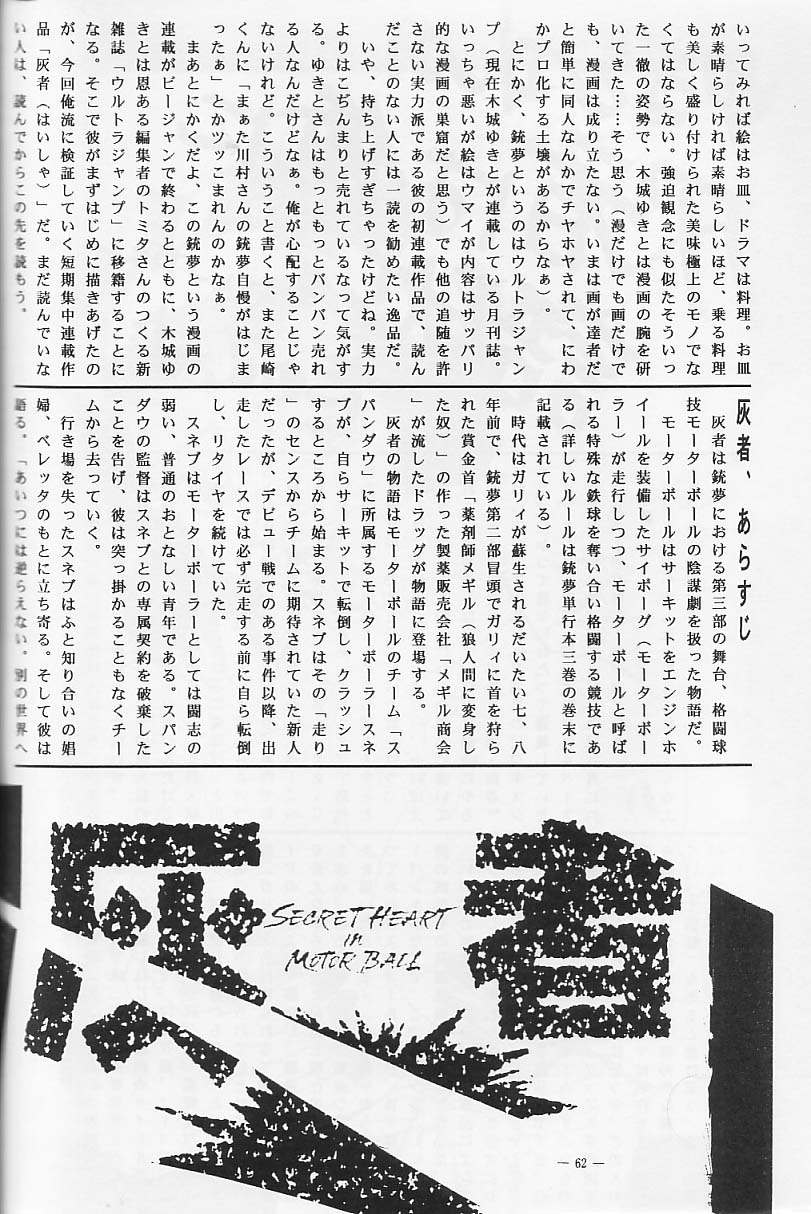 いってみれば絵はお皿、ドラマは料理。お皿
が素晴らしければ素晴らしいほど、乗る料理
も美しく盛り付けられた美味極上のモノでな
くてはならない。強迫観念にも似たそういっ
た一徹の姿勢で、木城ゆきとは漫画の腕を研
いてきた……そう思う(漫だけでも画だけで
も、漫画は成り立たない。いまは画が達者だ
と簡単に同人なんかでチヤホヤされて、にわ
かプロ化する土壌があるからなぁ)。
とにかく、銃夢というのはウルトラジャン
プ(現在木城ゆきとが連載している月刊誌。
いっちゃ悪いが絵はウマイが内容はサッパリ
的な漫画の巣窟だと思う)でも他の追随を許
さない実力派である彼の初連載作品で、読ん
だことのない人には一読を勧めたい逸品だ。
いや、持ち上げすぎちゃったけどね。実力
よりはこぢんまりと売れているなって気がす
る。ゆきとさんはもっともっとバンバン売れ
る人なんだけどなぁ。俺が心配することじゃ
ないけれど。こういうこと書くと、また尾崎
くんに「まぁた川村さんの銃夢自慢がはじま
ったぁ」とかツッこまれんのかなぁ。
まあとにかくだよ、この銃夢という漫画の
連載がビージャンで終わるとともに、木城ゆ
きとは恩ある編集者のトミタさんのつくる新
雑誌「ウルトラジャンプ」に移籍することに
なる。そこで彼がまずはじめに描きあげたの
が、今回俺流に検証していく短期集中連載作
品「灰者(はいしゃ)」だ。まだ読んでいな
い人は、読んでからこの先を読もう。
灰者、あらすじ
灰者は銃夢における第三部の舞台、格闘球
技モーターボールの陰謀劇を扱った物語だ。
モーターボールはサーキットをエンジンホ
イールを装備したサイボーグ(モーターボー
ラー)が走行しつつ、モーターボールと呼ば
れる特殊な鉄球を奪い合い格闘する競技であ
る(詳しいルールは銃夢単行本三巻の巻末に
記載されている)。
時代はガリィが蘇生されるだいたい七、八
年前で、銃夢第二部冒頭でガリィに首を狩ら
れた賞金首「薬剤師メギル(狼人間に変身し
た奴)」の作った製薬販売会社「メギル商会
」が流したドラッグが物語に登場する。
灰者の物語はモーターボールのチーム「ス
パンダウ」に所属するモーターボーラースネ
ブが、自らサーキットで転倒し、クラッシュ
するところから始まる。スネブはその「走り
」のセンスからチームに期待されていた新人
だったが、デビュー戦でのある事件以降、出
走したレースでは必ず完走する前に自ら転倒
し、リタイヤを続けていた。
スネブはモーターボーラーとしては闘志の
弱い、普通のおとなしい青年である。スパン
ダウの監督はスネブとの専属契約を破棄した
ことを告げ、彼は突っ掛かることもなくチー
ムから去っていく。
行き場を失ったスネブはふと知り合いの娼
婦、ベレッタのもとに立ち寄る。そして彼は
語る。「あいつには逆らえない。別の世界へ
灰者
SECRET HEART
in
MOTOR BALL
— 62 —